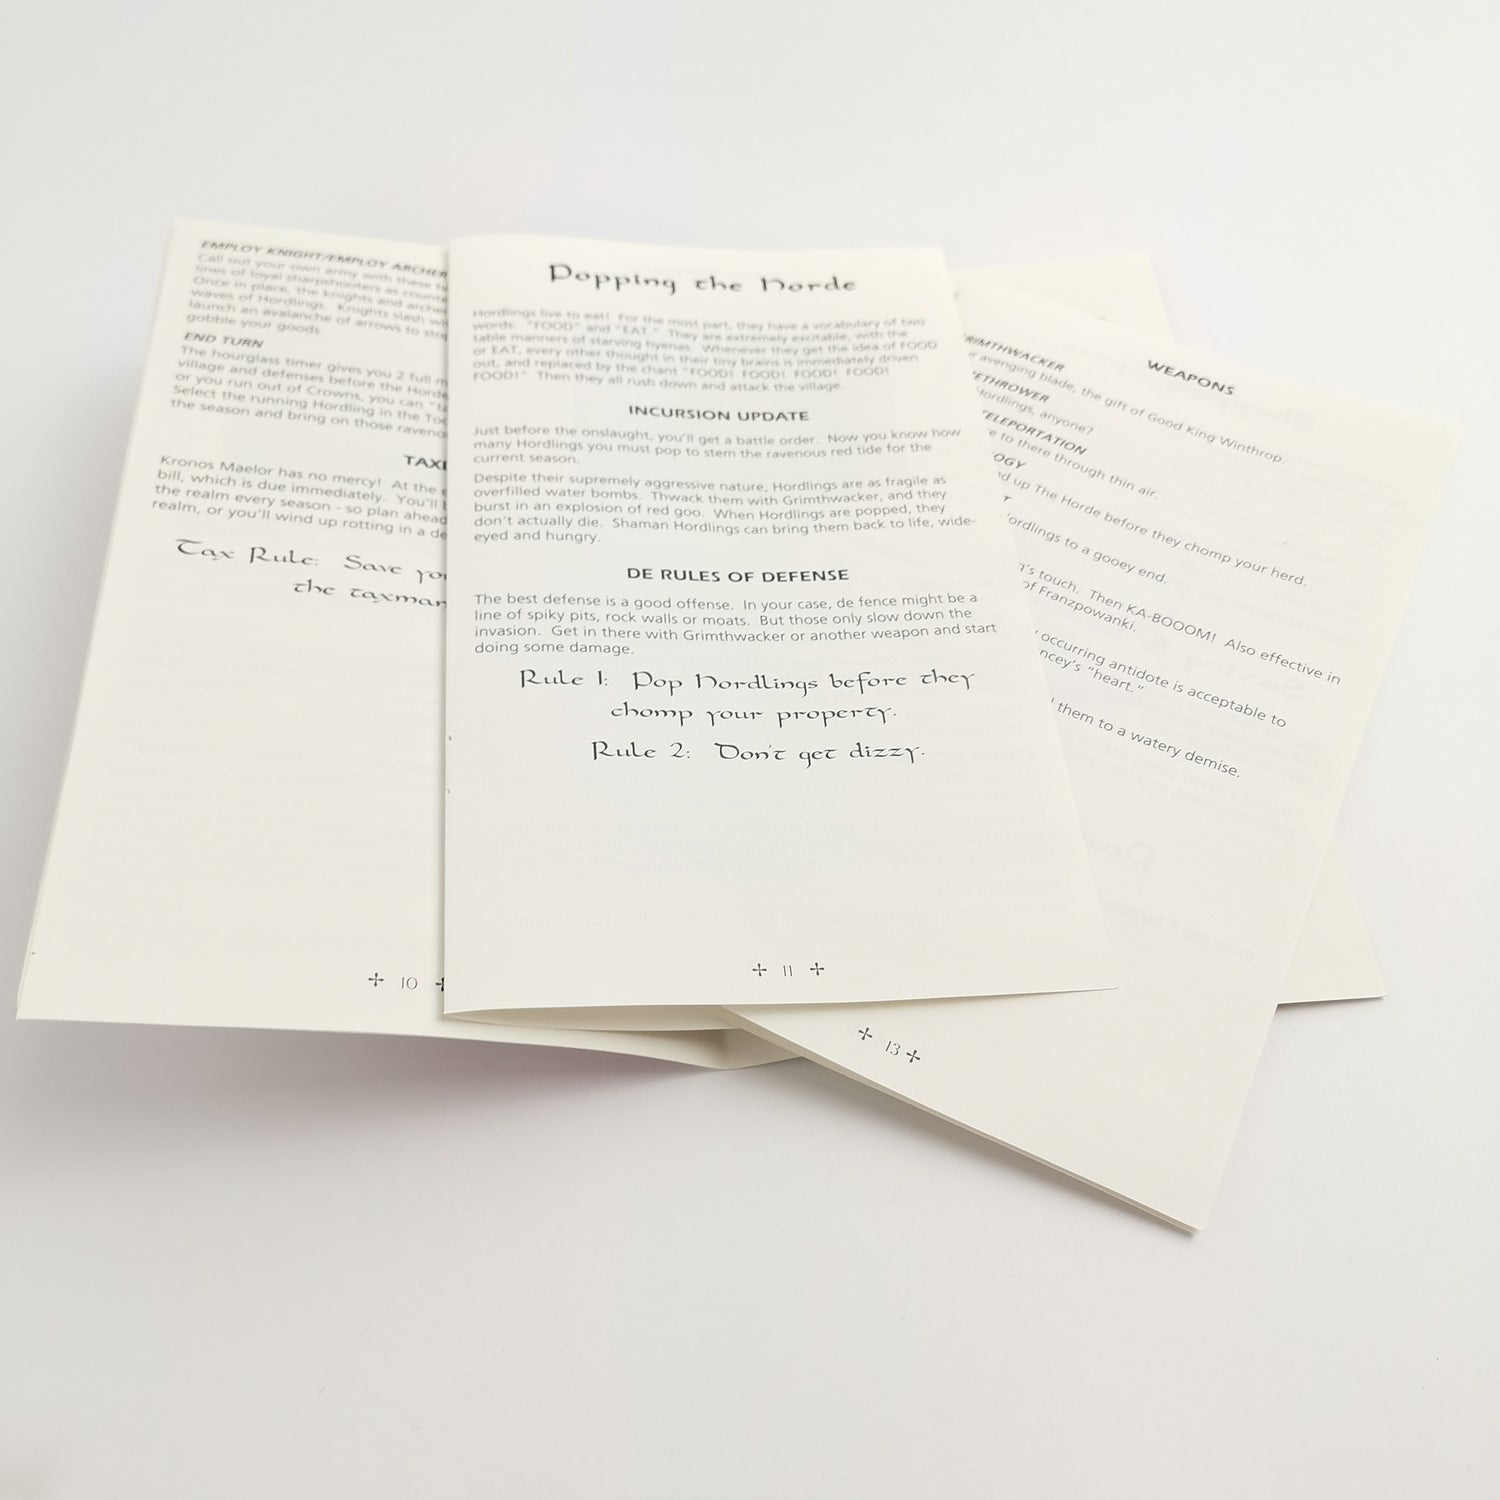 EMPLOY KNIGHT/EMPLOY ARCHER
Call out your own army with these
lines of loyal sharpshooters as
Once in place, the knights and
waves of Hordlings. Knights slash
launch an avalanche of arrows to
gobble your goods.
END TURN
The hourglass timer gives you 2 full
village and defenses before the
or you run out of Crowns, you can
Select the running Hordling in the
the season and bring on those
Kronos Maelor has no mercy! At the
bill, which is due immediately. You'll
the realm every season - so plan ahead
realm, or you'll wind up rotting in a
Tax Rule: Save
the taxman
✢ 10
Popping the Horde
Hordlings live to eat! For the most part, they have a vocabulary of two
words: "FOOD" and "EAT." They are extremely excitable, with the
table manners of starving hyenas. Whenever they get the idea of FOOD
or EAT, every other thought in their tiny brains is immediately driven
out, and replaced by the chant "FOOD! FOOD! FOOD! FOOD!
FOOD!" Then they all rush down and attack the village.
INCURSION UPDATE
Just before the onslaught, you'll get a battle order. Now you know how
many Hordlings you must pop to stem the ravenous red tide for the
current season.
Despite their supremely aggressive nature, Hordlings are as fragile as
overfilled water bombs. Thwack them with Grimthwacker, and they
burst in an explosion of red goo. When Hordlings are popped, they
don't actually die. Shaman Hordlings can bring them back to life, wide-
eyed and hungry.
DE RULES OF DEFENSE
The best defense is a good offense. In your case, de fence might be a
line of spiky pits, rock walls or moats. But those only slow down the
invasion. Get in there with Grimthwacker or another weapon and start
doing some damage.
Rule 1: Pop Hordlings before they
chomp your property.
Rule 2: Don't get dizzy.
✢ 11 ✢
WEAPONS
RIMTHWACKER
avenging blade, the gift of Good King Winthrop.
ETHROWER
Hordlings, anyone?
TELEPORTATION
e to there through thin air.
OGY
nd up The Horde before they chomp your herd.
Hordlings to a gooey end.
's touch. Then KA-BOOOM! Also effective in
of Franzpowanki.
occurring antidote is acceptable to
ncey's "heart."
them to a watery demise.
✢ 13 ✢